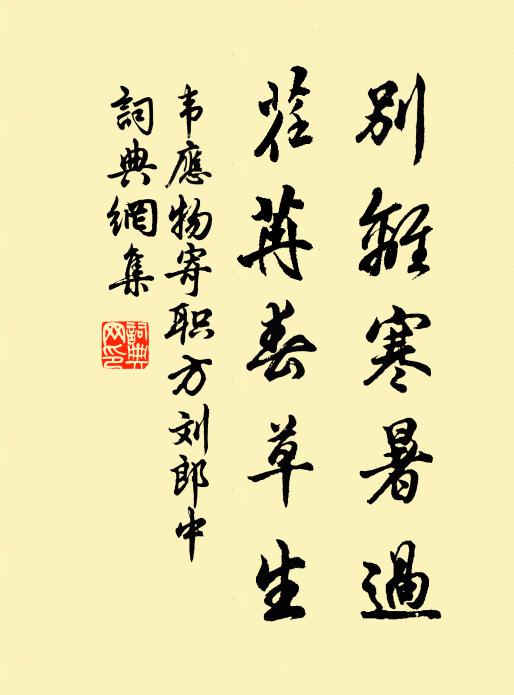 別離寒暑過
荏苒春草生
韦應物寄职方刘郎中
詞典網集
詞典網印